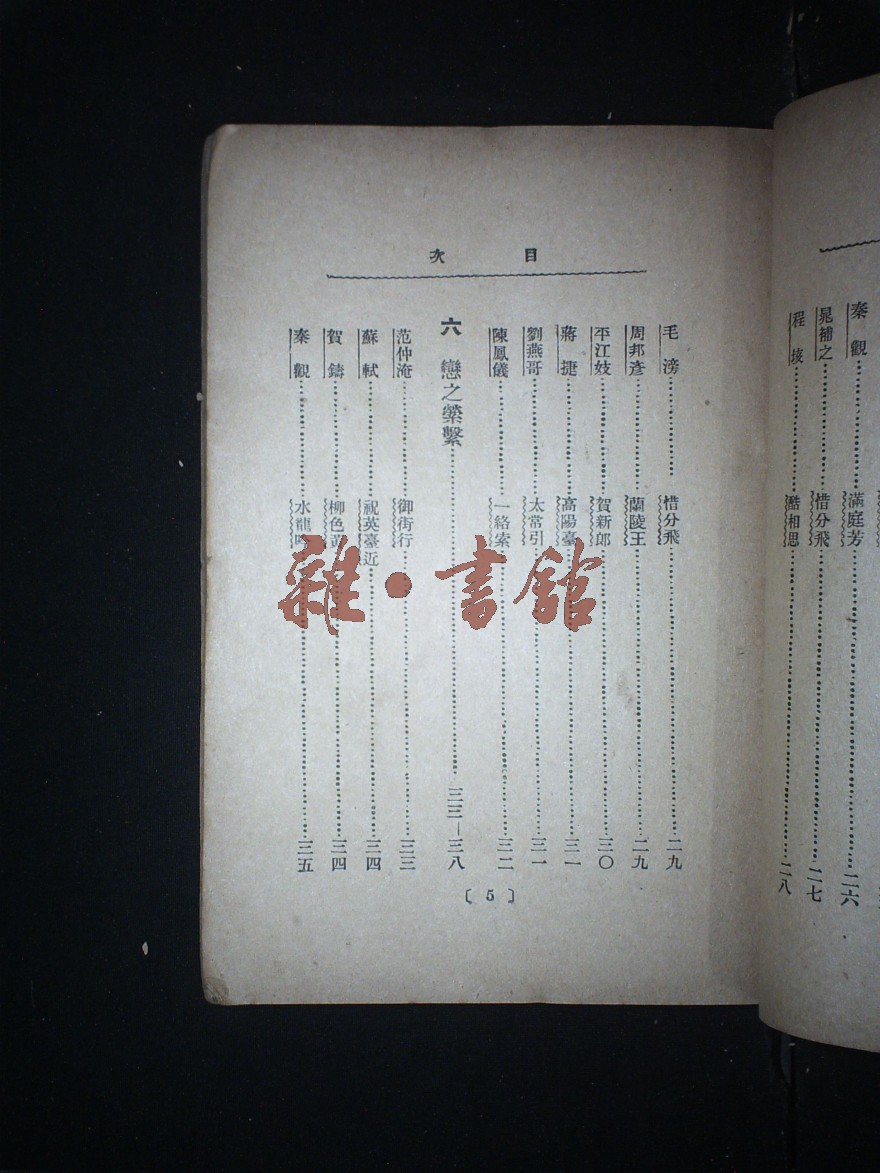 秦觀 滿庭芳 二六
晁補之 惜分飛 二七
程垓 酷相思 二八
目次
毛滂 惜分飛 二九
周邦彥 蘭陵王 二九
平江妓 賀新郎 三〇
蔣捷 高陽臺 三一
劉燕哥 太常引 三一
陳鳳儀 一絡索 三二
六 戀之縈繫 三三—三八
范仲淹 御街行 三三
蘇軾 祝英臺近 三四
賀鑄 柳色黃 三四
秦觀 水龍吟 三五
〔5〕
雜·書館